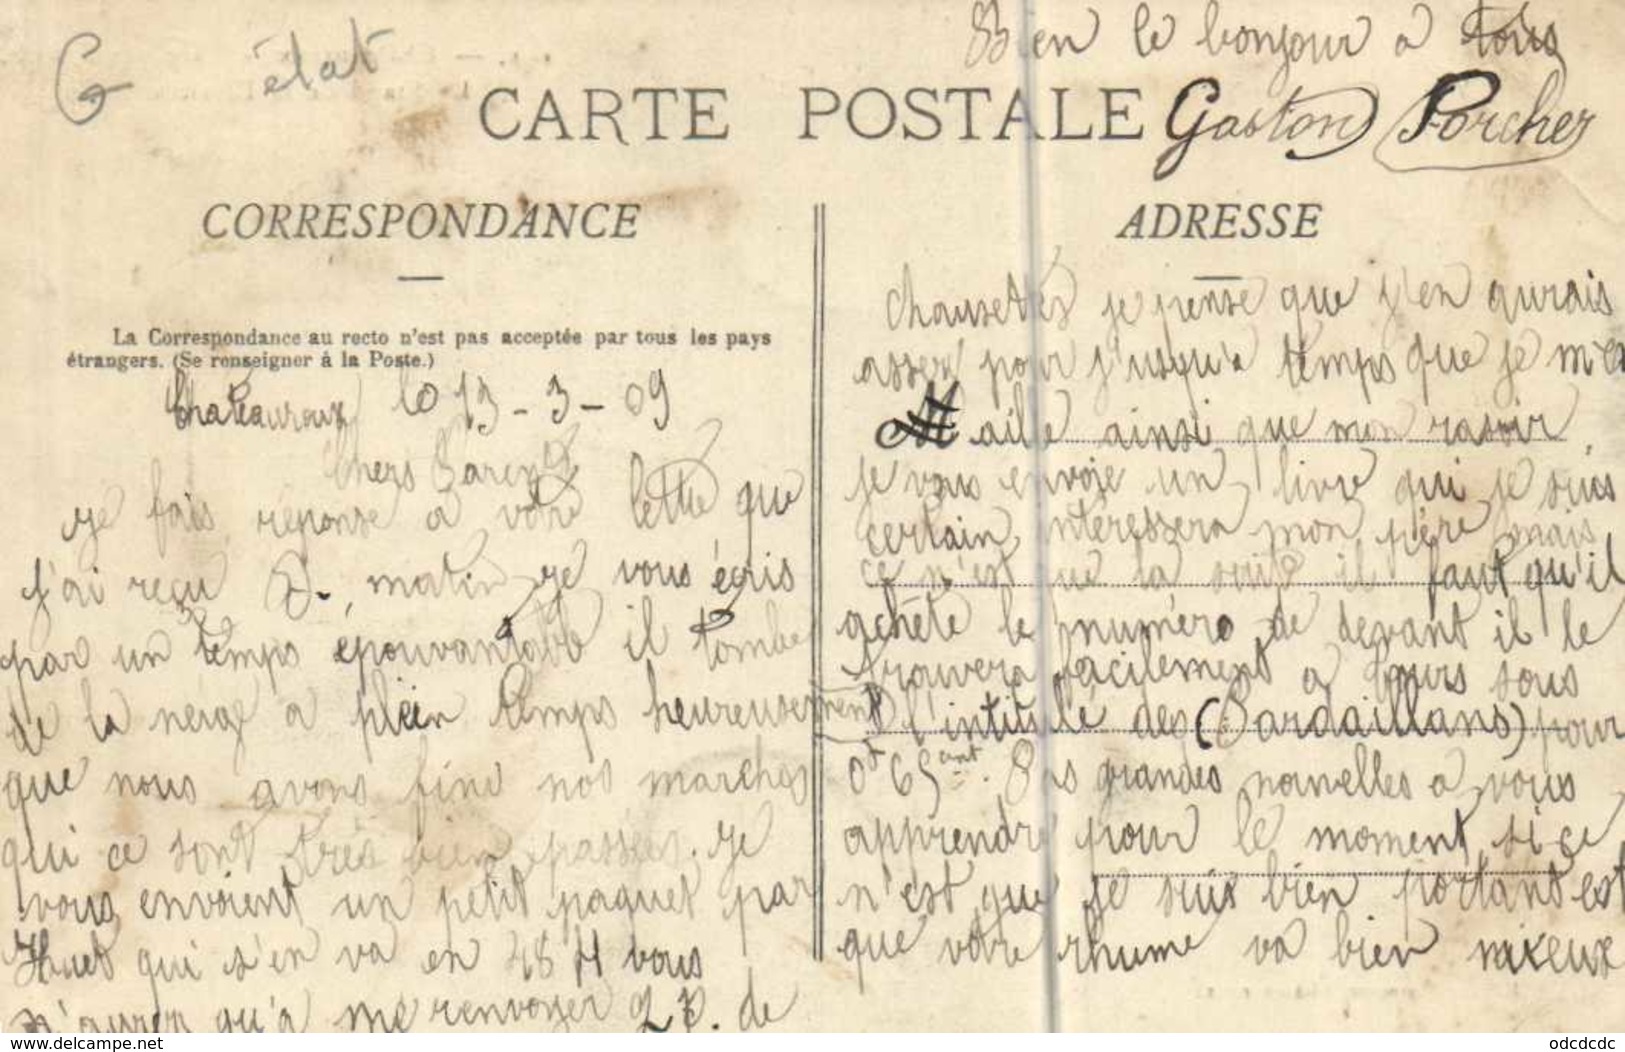 G état
Bien le bonjour à tous
CARTE POSTALE
Gaston Porcher
CORRESPONDANCE
La Correspondance au recto n'est pas acceptée par tous les pays
étrangers. (Se renseigner à la Poste.)
Chateauroux le 13-3-09
Chers Parents
je fais réponse à votre lettre que
j'ai reçu matin je vous écris
par un temps épouvantable il tombe
de la neige a plein temps heureusement
que nous avons find nos marches
qui ce sont très bien passées. Je
vous envoient un petit paquet par
Huet qui s'en va en 48 H vous
n'aurer qu'à me renvoyer 2 P. de
ADRESSE
chausettes je pense que j'en aurais
assez pour j'usqu'a temps que je m'en
aille ainsi que mon rasoir,
je vous envoie un livre qui je suis
certain intéressera mon père mais
ce n'est que la suite il faut qu'il
achète le numéro de devant il le
trouvera facilement a Tours sous
l'intitulé des (Pardaillans) pour
0f 65cent. Pas grandes nouvelles a vous
apprendre pour le moment si ce
n'est que je suis bien portant est
que votre rhume va bien mieux
odcdcdc
www.delcampe.net